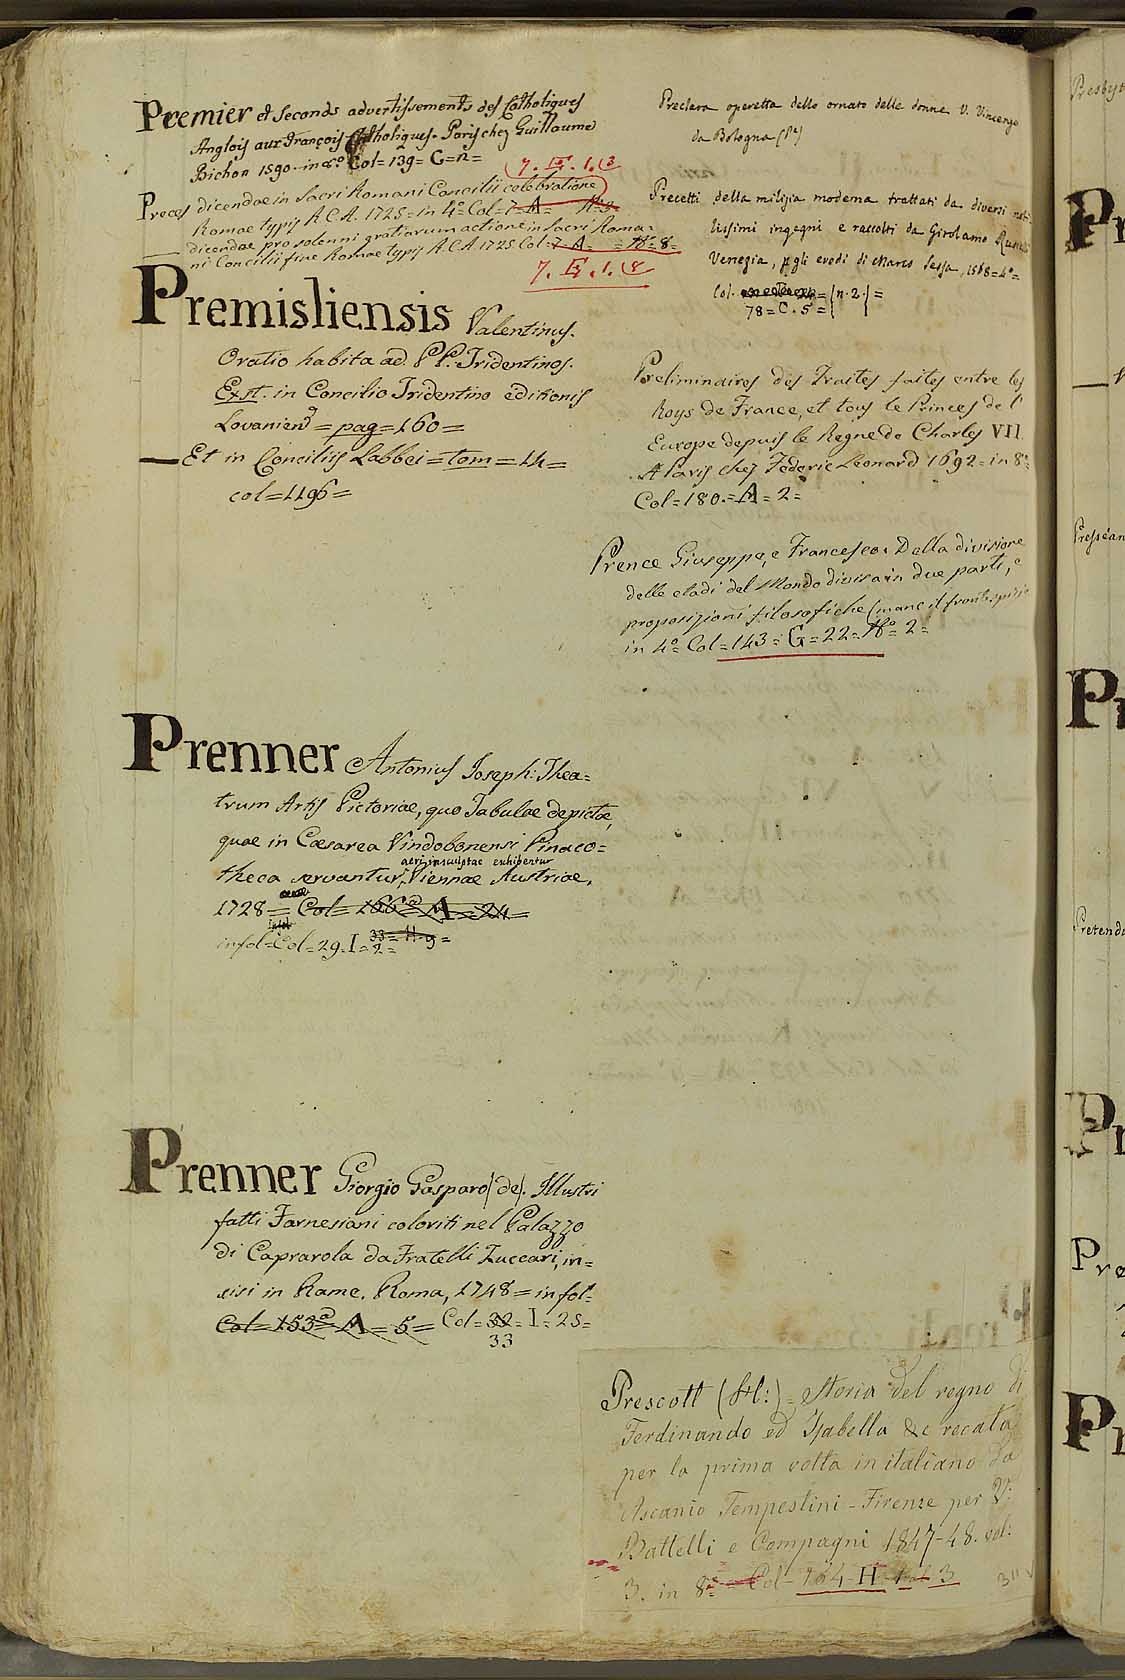 Premier et Seconds advertissements des Catholiques
Anglois aux François Catholiques. Paris chez Guillaume
Bichon 1590. in 8.º Col=139= G=12=
7. G. 1. (3
Preces dicendae in Sacri Romani Concilii celebratione
Romae typis R.C.A. 1725=in 4º=Col=7=A= Nº3=
— dicendae pro solenni gratiarum actione in Sacri Roma=
ni Concilii fine Romae typis R.C.A 1725 Col=7=A= =Nº=8=
7. G. 1. (8
Premisliensis Valentinus.
Oratio habita ad PP. Tridentinos.
Ext. in Concilio Tridentino editionis
Lovanien = pag=160=
— Et in Conciliis Labbei=tom=14=
col=1196=
Prenner Antonius Joseph. Thea=
trum Artis Pictoriae, quo Tabulae depictae,
quae in Caesarea Vindobonensi Pinaco=
aeri insculptae exhibentur
theca servantur, Viennae Austriae,
1728= Col=166ª=A=24=
infol=Col=29.I=33=11.9=
2=
Prenner Giorgio Gasparo (de). Illustri
fatti Farnesiani coloriti nel Palazzo
di Caprarola da Fratelli Zuccari, in=
cisi in Rame. Roma, 1748=infol=
Col=153ª=A=5= Col=32=I=25=
33
Preclara operetta dello ornato delle donne V. Vincenzo
da Bologna (Pª)
Precetti della milizia moderna trattati da diversi
lissimi ingegni e raccolti da Girolamo
Venezia, p gli eredi di Marco Sessa, 1568=4º=
Col. =(n.2.)=
78=C.5=
Preliminaires des Traites faites entre les
Roys de France, et tous le Princes de l'
Europe depuis le Regne de Charles VII.
A Paris chez Federic Leonard 1692=in 8º=
Col=180.=A=2=
Prence Giuseppe, e Francesco. Della divisione
delle etadi del Mondo divisa in due parti, e
proposizioni filosofiche (manc il frontespizio
in 4º= Col=143=G=22=Nº=2=
Prescott (H:)= Storia del regno di
Ferdinando ed Isabella &c recata
per la prima volta in italiano da
Ascanio Tempestini - Firenze per V:
Battelli e Compagni 1847-48. vol:
3. in 8º= Col-164-H 3
Presbyt
Pr
Presséan
Pr
Pretenda
Pr
Pre
Pr